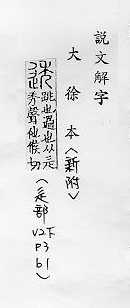 説文解字
大徐本〈新附〉
透 跳也過也从辵
秀聲他候切
〈辵部
V2下
P3
b1〉